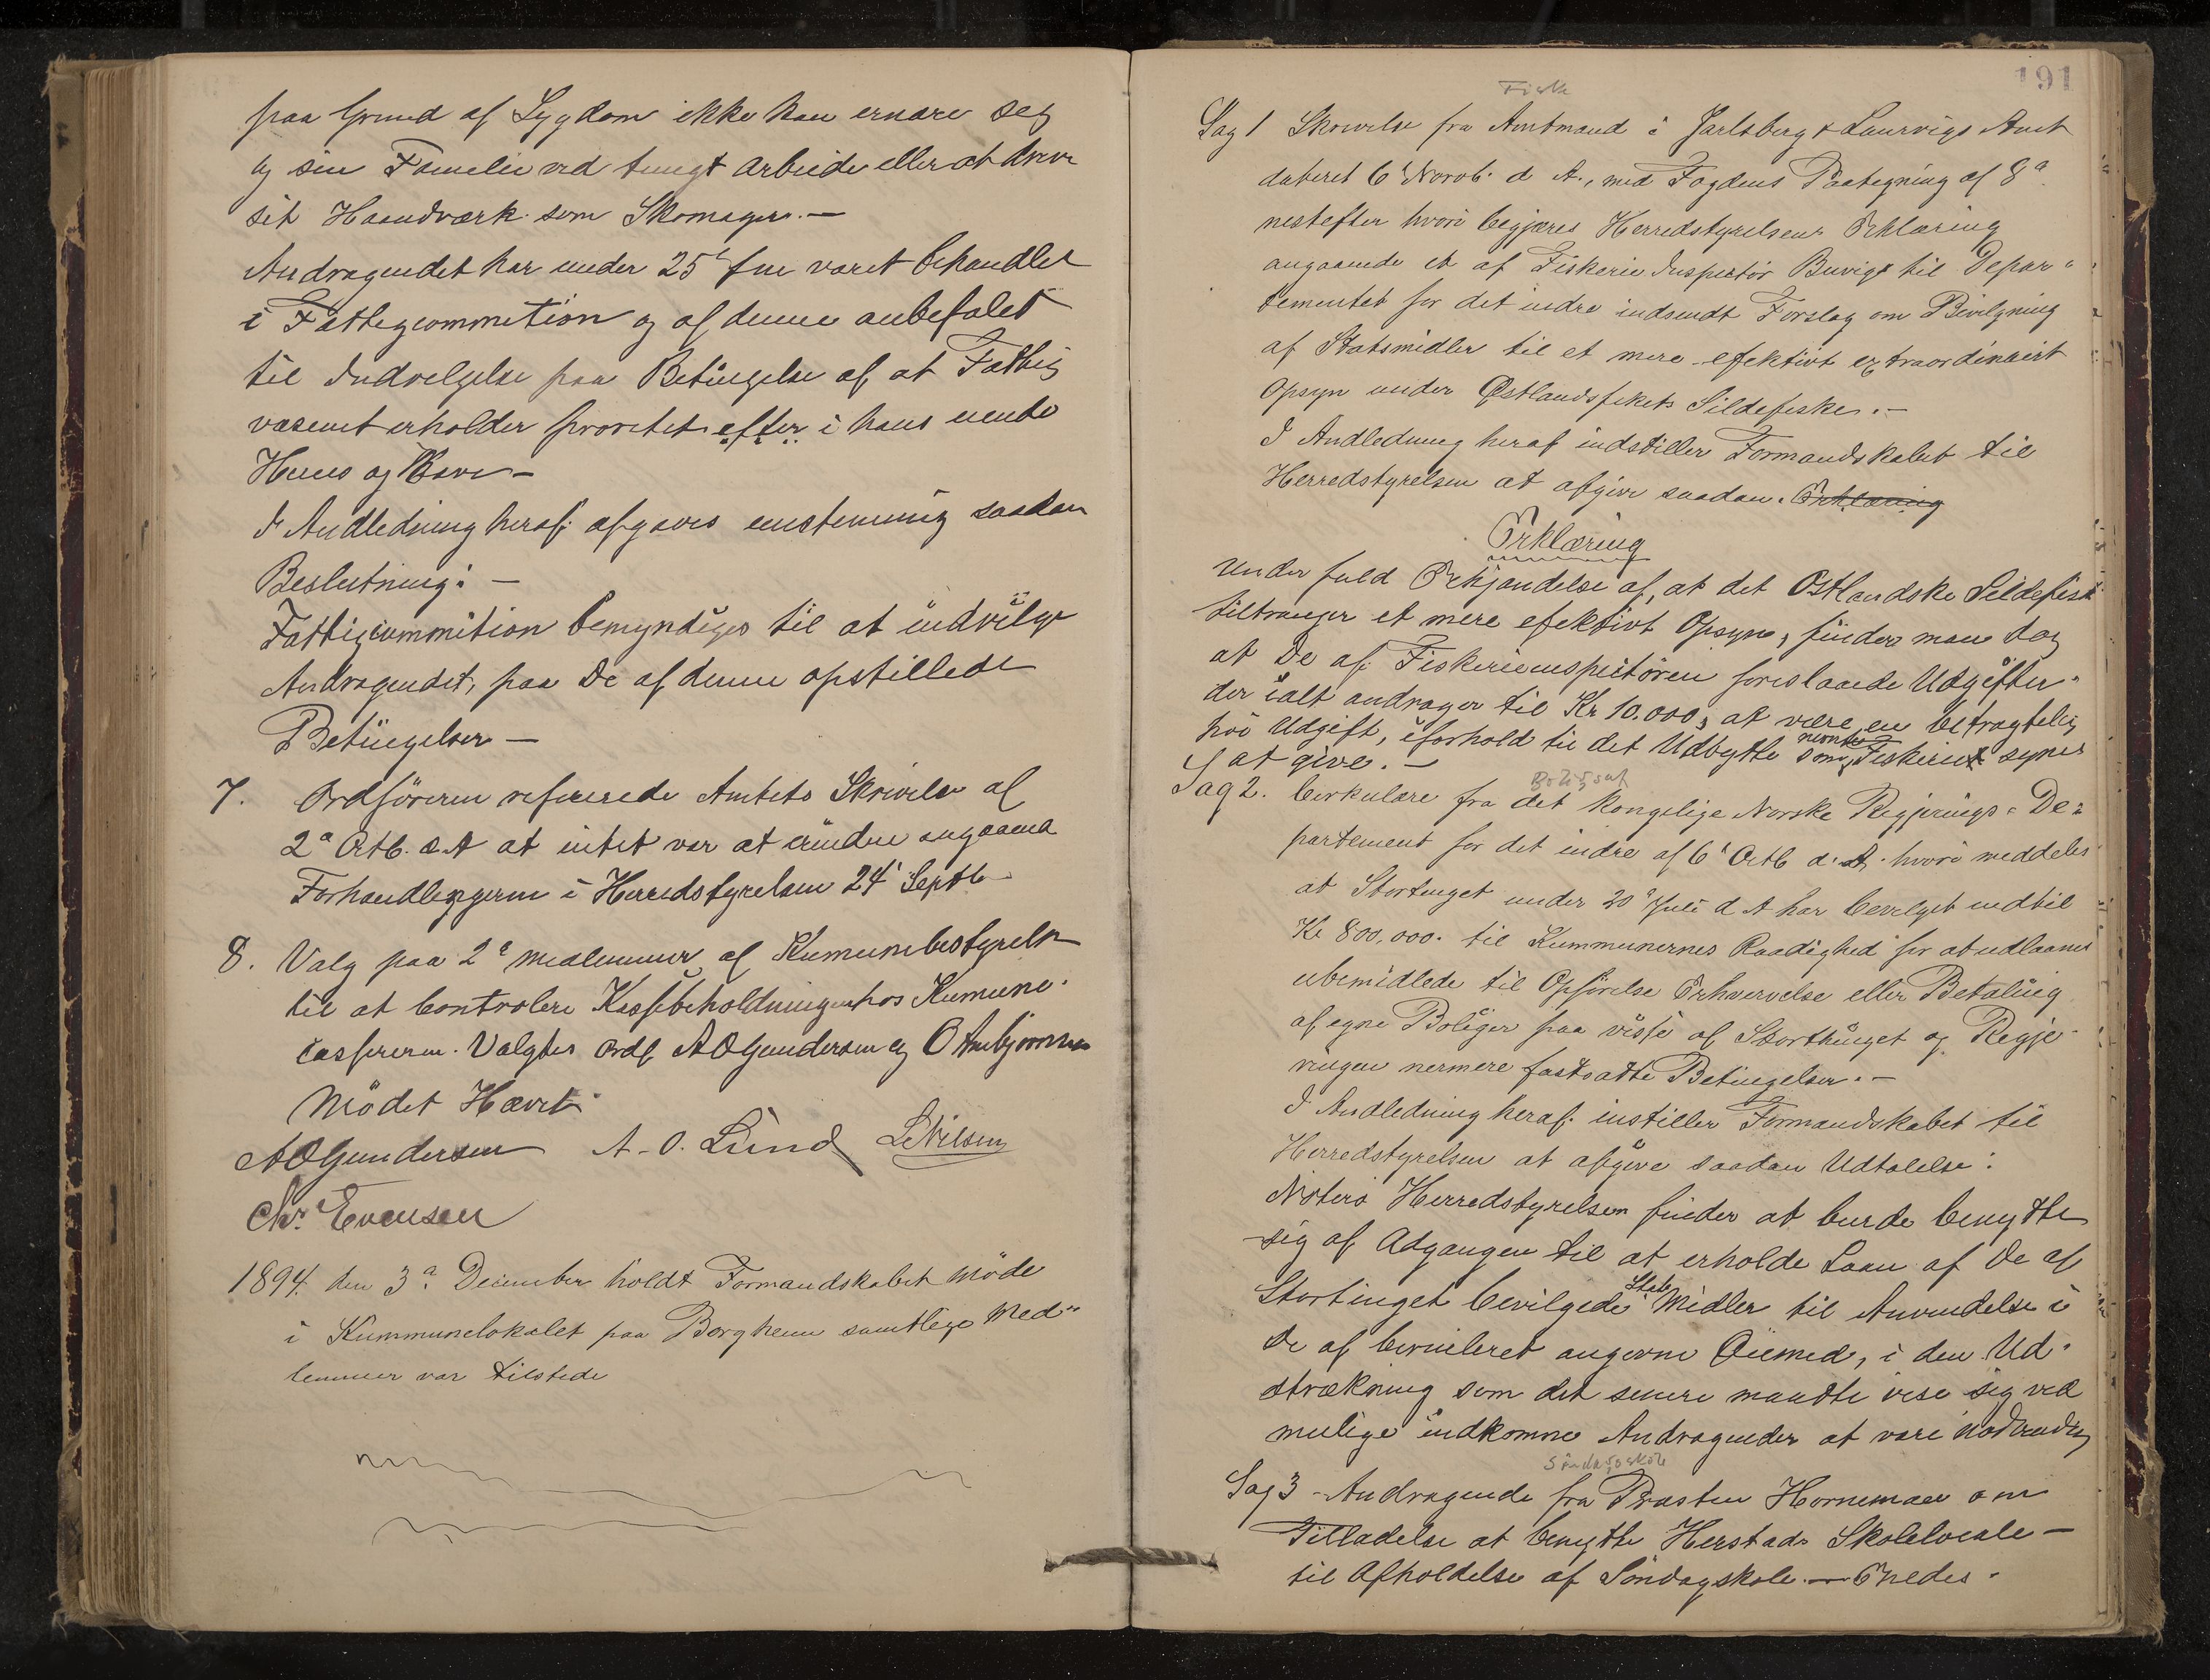 paa Grund af Sygdom ikke kan ernære seg
og sin Familie ved tungt arbeide eller at drive
sit Haandværk som Skomager.—
Andragendet har under 25' været behandlet
i Fattigcommition og af denne anbefalet
til Indvelgelse paa Betingelse af at Fattig
væsenet erholder prioritet efter i hans
Huus og Have—
I Andledning heraf afgaves enstemmig saadan
Beslutning:—
Fattigcommition bemyndiges til at indvilge
Andragendet, paa De af denne opstillede
Betingelser—
7. Ordföreren refererede Amtets Skrivelse af
2a Octb. d.A at intet var at erindre angaaend
Forhandlingerne i Herredstyrelsen 24' Septb
8. Valg paa 2a medlemmer af Kumunebestyrelsn
til at Controlere Kassebeholdningen hos Kumune-
cassereren. Valgtes Ordf AOGundersen og O Anbjörnsen
Mödet Hævet
AOGundersen A. O. Lund L Nilsen
Chr. Evensen
1894. den 3a December holdt Formandskabet Möde
i Kummunelokalet paa Borgheim samtlige Med=
lemmer var tilstede
191
Fiske
Sag 1 Skrivelse fra Amtmand i Jarlsberg & Laurvigs Amt
dateret 6' Novb. d A., med Fogdens Paategning af 8a
nestefter hvori begjæres Herredstyrelsens Erklæring
angaaende et af Fiskerie Inspektör Buvig til Depar=
tementet for det indre indsendt Forslag om Bevilgning
af Statsmidler til et mere efektivt extraordinært
Opsyn under Østlandsfiskets Sildefiske.—
I Andledning heraf indstiller Formandskabet til
Herredstyrelsen at afgive saadan. Erklæring
Erklæring
Under fuld Erkjendelse af, at det Østlandske Sildefisk
tiltrænger et mere efektivt Opsyn, finder man dog
at De af Fiskerieinspektören foreslaaede Udgifter
der ialt andrager til Kr 10.000, at være en betragtelig
höi Udgift, i forhold til det Udbytte som nævnte Fiskeriet synes
at give.—
Boligsat
Sag 2. Cirkulære fra det kongelige Norske Regjerings=De=
partement for det indre af 6' Octb d. A. hvori meddeles
at Stortinget under 20a Juli d A har bevilget indtil
Kr 800,000. til Kummunernes Raadighed for at udlaanes
ubemidlede til Opförelse Erhvervelse eller Betaling
af egne Boliger paa visse af Storthinget og Regje-
ringen nermere fastsatte Betingelser.—
I Andledning heraf instiller Formandskabet til
Herredstyrelsen at afgive saadan Udtalelse:
Nöterö Herredstyrelsen finder at burde benytte
sig af Adgangen til at erholde Laan af De af
Stortinget bevilgede Stats Midler til Anvendelse i
De af angivne Öiemed, i den Ud-
strækning som det senere maatte vise sig ved
mulige indkomne Andragender at være nödvendig
Söndagsskole
Sag 3 - Andragende fra Presten Horneman om
Tilladelse at benytte Herstads Skolelocale—
til Afholdelse af Söndagskole.